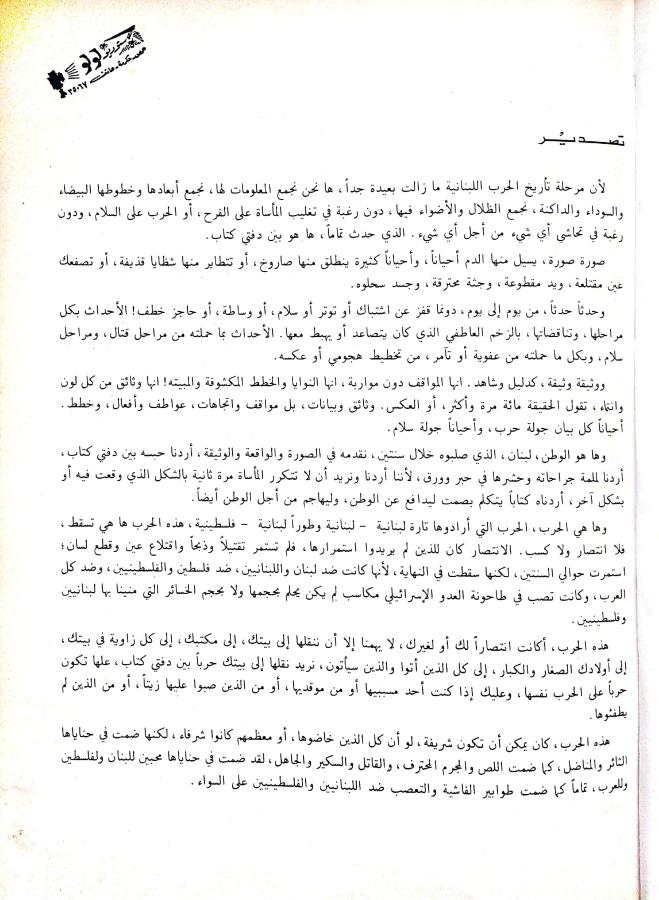 ستوديو لولو
تصديْر
لأن مرحلة تأريخ الحرب اللبنانية ما زالت بعيدة جداً، ها نحن نجمع المعلومات لها، نجمع أبعادها وخطوطها البيضاء
والسوداء والداكنة، نجمع الظلال والأضواء فيها، دون رغبة في تغليب المأساة على الفرح، أو الحرب على السلام، ودون
رغبة في تحاشي أي شيء من أجل أي شيء. الذي حدث تماماً، ها هو بين دفتي كتاب.
صورة صورة، يسيل منها الدم أحياناً، وأحياناً كثيرة ينطلق منها صاروخ، أو تتطاير منها شظايا قذيفة، أو تصفعك
عين مقتلعة، ويد مقطوعة، وجثة محترقة، وجسد سحلوه.
وحدثاً حدثاً، من يوم إلى يوم، دونما قفز عن اشتباك أو توتر أو سلام، أو وساطة، أو حاجز خطف! الأحداث بكل
مراحلها، وتناقضاتها، بالزخم العاطفي الذي كان يتصاعد أو يهبط معها. الأحداث بما حملته من مراحل قتال، ومراحل
سلام، وبكل ما حملته من عفوية أو تآمر، من تخطيط هجومي أو عكسه.
ووثيقة وثيقة، كدليل وشاهد. انها المواقف دون مواربة، انها النوايا والخطط المكشوفة والمبيته! انها وثائق من كل لون
وانتماء، تقول الحقيقة مائة مرة وأكثر، أو العكس. وثائق وبيانات، بل مواقف واتجاهات، عواطف وأفعال، وخطط.
أحياناً كل بيان جولة حرب، وأحياناً جولة سلام.
وها هو الوطن، لبنان، الذي صلبوه خلال سنتين، نقدمه في الصورة والواقعة والوثيقة، أردنا حبسه بين دفتي كتاب،
أردنا لملمة جراحاته وحشرها في حبر وورق، لأننا أردنا ونريد أن لا تتكرر المأساة مرة ثانية بالشكل الذي وقعت فيه أو
بشكل آخر، أردناه كتاباً يتكلم بصمت ليدافع عن الوطن، وليهاجم من أجل الوطن أيضاً.
وها هي الحرب، الحرب التي أرادوها تارة لبنانية - لبنانية وطوراً لبنانية - فلسطينية، هذه الحرب ها هي تسقط،
فلا انتصار ولا كسب. الانتصار كان للذين لم يريدوا استمرارها، فلم تستمر تقتيلاً وذبحاً واقتلاع عين وقطع لسان؛
استمرت حوالي السنتين، لكنها سقطت في النهاية، لأنها كانت ضد لبنان واللبنانيين، ضد فلسطين والفلسطينيين، وضد كل
العرب، وكانت تصب في طاحونة العدو الإسرائيلي مكاسب لم يكن يحلم بحجمها ولا بحجم الخسائر التي منينا بها لبنانيين
وفلسطينيين.
هذه الحرب، أكانت انتصاراً لك أو لغيرك، لا يهمنا إلا أن ننقلها إلى بيتك، إلى مكتبك، إلى كل زاوية في بيتك،
إلى أولادك الصغار والكبار، إلى كل الذين أتوا والذين سيأتون، نريد نقلها إلى بيتك حرباً بين دفتي كتاب، علها تكون
حرباً على الحرب نفسها، وعليك إذا كنت أحد مسببيها أو من موقديها، أو من الذين صبوا عليها زيتاً، أو من الذين لم
يطفئوها.
هذه الحرب، كان يمكن أن تكون شريفة، لو أن كل الذين خاضوها، أو معظمهم كانوا شرفاء، لكنها ضمت في حناياها
الثائر والمناضل، كما ضمت اللص والمجرم المحترف، والقاتل والسكير والجاهل، لقد ضمت في حناياها محبين للبنان ولفلسطين
وللعرب، تماماً كما ضمت طوابير الفاشية والتعصب ضد اللبنانيين والفلسطينيين على السواء.